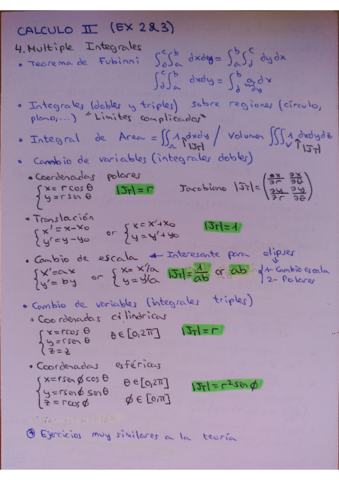 CALCULO II (EX 2&3)
4. Multiple Integrales
• Teorema de Fubinni ∫_d^c ∫_a^b dxdy = ∫_a^b ∫_d^c dydx
∫_d^c ∫_a^b dxdy = ∫_d^c dx
• Integrales (dobles y triples) sobre regiones (círculo, plano,...) "Limites complicados"
• Integral de Area = ∬_A 1 dxdy / Volumen ∭_V dxdydz
|J_T| |J_T|
• Cambio de variables (integrales dobles)
• Coordenadas polares
{ x = r cos θ
y = r sen θ |J_T| = r Jacobiano |J_T| = ( ∂x/∂r ∂x/∂θ
∂y/∂r ∂y/∂θ )
• Translación
{ x' = x - x₀ or { x = x' + x₀ |J_T| = 1
y' = y - y₀ y = y' + y₀
• Cambio de escala ← Interesante para elipses
{ x' = ax or { x = x'/a |J_T| = 1/ab or ab { 1- Cambio escala
y' = by y = y'/b 2- Polares
• Cambio de variables (integrales triples)
• Coordenadas cilíndricas
{ x = r cos θ θ ∈ [0, 2π] |J_T| = r
y = r sen θ
z = z
• Coordenadas esféricas
{ x = r sen ϕ cos θ θ ∈ [0, 2π]
y = r sen ϕ sen θ |J_T| = r² sen ϕ
z = r cos ϕ ϕ ∈ [0, π]
Ejercicios muy similares a la teoría